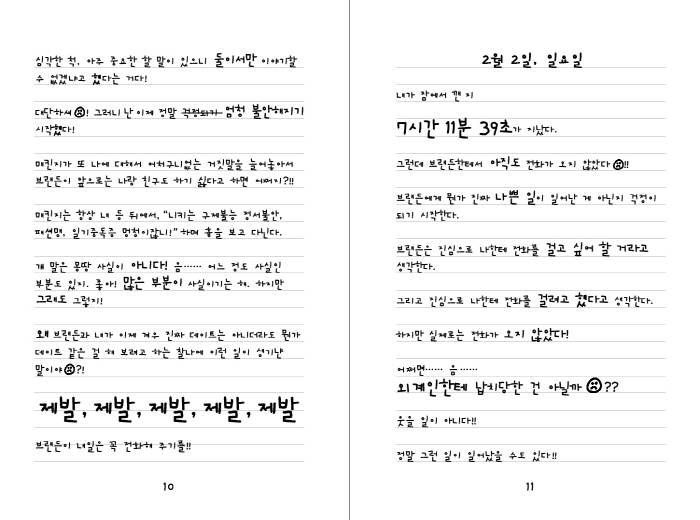 심각한 척, 아주 중요한 할 말이 있으니 둘이서만 이야기할
수 없겠냐고 했다는 거다!
대단하셔☹! 그러니 난 이제 정말 걱정되기 엄청 불안해지기
시작했다!
매킨지가 또 나에 대해서 어처구니없는 거짓말을 늘어놓아서
브랜든이 앞으로는 나랑 친구도 하기 싫다고 하면 어쩌지?!!
매킨지는 항상 내 등 뒤에서, “니키는 구제불능 정서불안,
패션맹, 일기중독증 멍청이잖니!” 하며 흉을 보고 다닌다.
걔 말은 몽땅 사실이 아니다! 음…… 어느 정도 사실인
부분도 있지. 좋아! 많은 부분이 사실이기는 해. 하지만
그래도 그렇지!
왜 브랜든과 내가 이제 겨우 진짜 데이트는 아니더라도 뭔가
데이트 같은 걸 해 보려고 하는 찰나에 이런 일이 생기냔
말이야☹?!
제발, 제발, 제발, 제발, 제발
브랜든이 내일은 꼭 전화해 주기를!!
10
2월 2일, 일요일
내가 잠에서 깬 지
7시간 11분 39초가 지났다.
그런데 브랜든한테서 아직도 전화가 오지 않았다☹!!
브랜든에게 뭔가 진짜 나쁜 일이 일어난 게 아닌지 걱정이
되기 시작한다.
브랜든은 진심으로 나한테 전화를 걸고 싶어 할 거라고
생각한다.
그리고 진심으로 나한테 전화를 걸려고 했다고 생각한다.
하지만 실제로는 전화가 오지 않았다!
어쩌면…… 음……
외계인한테 납치당한 건 아닐까☹??
웃을 일이 아니다!!
정말 그런 일이 일어났을 수도 있다!!
11